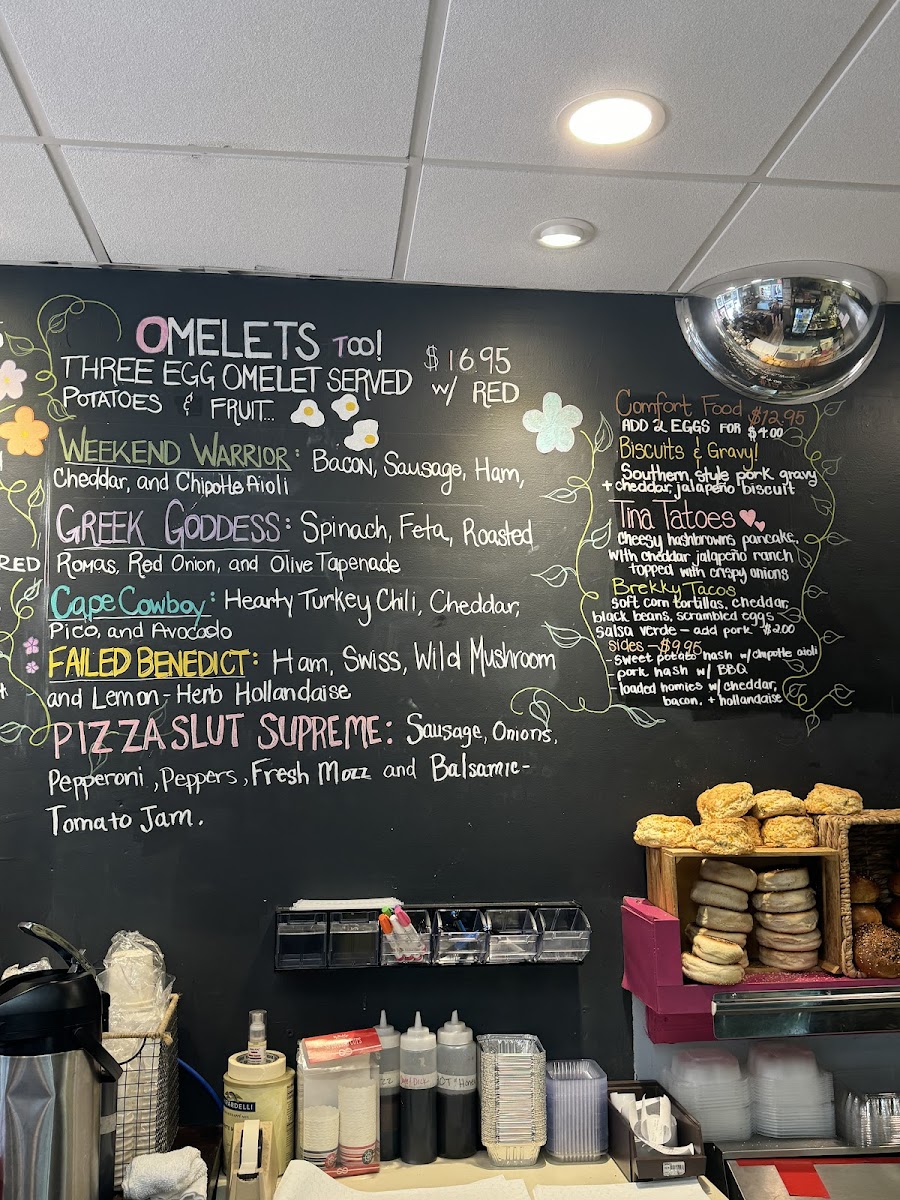 OMELETS TOO!
$16.95
THREE EGG OMELET SERVED W/ RED
POTATOES & FRUIT...
WEEKEND WARRIOR: Bacon, Sausage, Ham,
Cheddar, and Chipotle Aioli
GREEK GODDESS: Spinach, Feta, Roasted
Romas, Red Onion, and Olive Tapenade
Cape Cowboy: Hearty Turkey Chili, Cheddar,
Pico, and Avocado
FAILED BENEDICT: Ham, Swiss, Wild Mushroom
and Lemon-Herb Hollandaise
PIZZA SLUT SUPREME: Sausage, Onions,
Pepperoni, Peppers, Fresh Mozz and Balsamic-
Tomato Jam.
RED
Comfort Food $12.95
ADD 2 EGGS FOR $4.00
Biscuits & Gravy!
Southern style pork gravy
+ cheddar, jalapeño biscuit
Tina Tatoes
cheesy hashbrowns pancake,
with cheddar jalapeño ranch
topped with crispy onions
Brekky Tacos
soft corn tortillas, cheddar,
black beans, scrambled eggs
salsa verde - add pork $2.00
sides - $9.95
- sweet potato hash w/chipotle aioli
- pork hash w/ BBQ
- loaded homies w/ cheddar,
bacon, + hollandaise